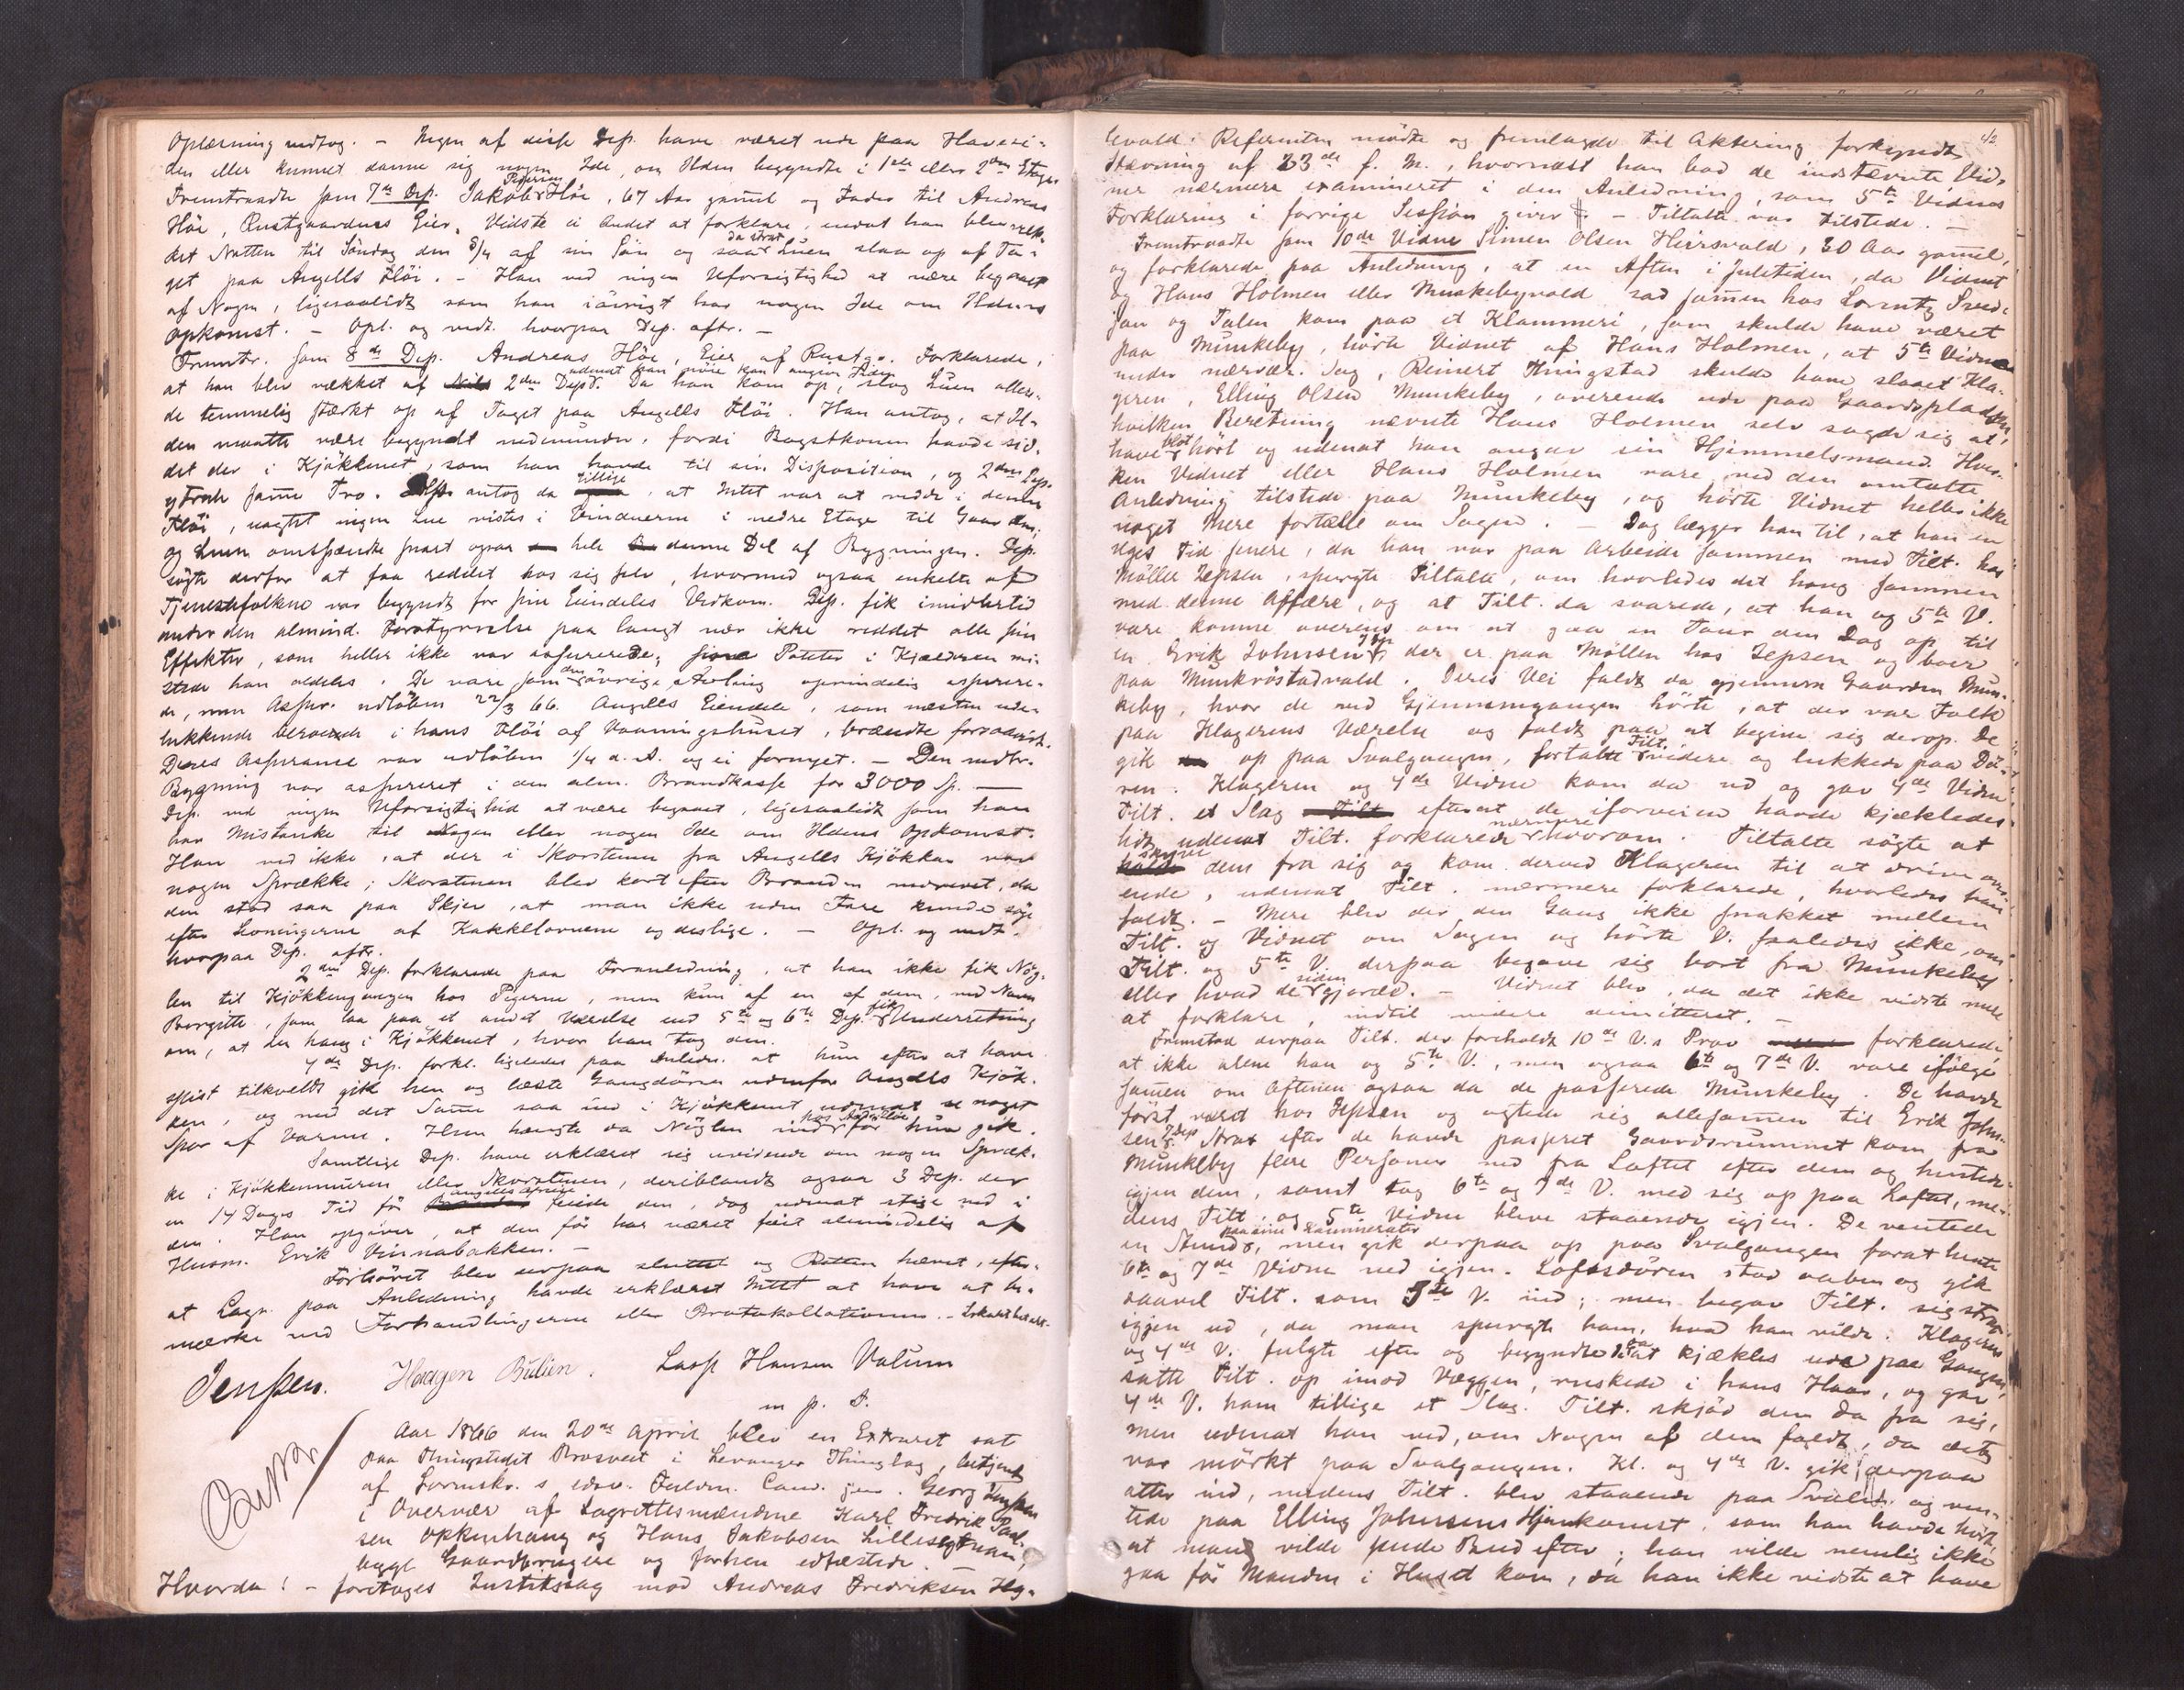 Oplæsning vedtog. - Ingen af disse Dep. have været ude paa Havesi-
den eller kunnet danne sig nogen Ide, om Ilden begyndte i 1ste eller 2den Etage
Fremtraadte som 7de Dep. Jakob Pedersen Höe, 67 Aar gammel og Fader til Andreas
Höe, Rustgaardens Eier. Vidste ei Andet at forklare, end at han blev væk-
ket Natten til Söndag den 8/4 af sin Sön og saa da strax Luen slaa op af Ta-
get paa Angells Flöi. - Han ved ingen Uforsigtighed at være begaaet
af Nogen, ligesaalidt som han iövrigt har nogen Ide om Ildens
Opkomst. - Opl. og vedt. hvorpaa Dep. aftr. -
Fremtr. som 8de Dep. Andreas Höe, Eier af Rustg. Forklarede,
at han blev vækket af 2den Dep. udenat han nöie kan angive Tiden. Da han kom op, slog Luen aller-
de temmelig stærkt op af Taget paa Angells Flöi. Han antog, at Il-
den maatte være begyndt nedenunder, fordi Bagstkonen havde sid-
det der i Kjökkenet, som han havde til sin Disposition, og 2den Dep.
yttrede samme Tro. Dep. antog da tillige, at Intet var at redde i denne
Flöi, uagtet ingen Lue vistes i Vinduerne i nedre Etage til Gaarden;
og Luen omspændte snart ogsaa hele denne Del af Bygningen. Dep.
sögte derfor at faa reddet hos sig selv, hvormed ogsaa enkelte af
Tjenestefolkene var begyndt for sine Eiendeles Vedkom. Dep. fik imidlertid
under den almind. Forstyrrelse paa langt nær ikke reddet alle sine
Effekter, som heller ikke var assurerede; sine Poteter i Kjælderen mi-
stede han aldeles. De vare som den övrige Avling oprindelig assurere-
de, men Assur. udlöben 22/3 66. Angells Eiendele, som næsten ude-
lukkende beroende i hans Flöi af Vaaningshuset, brændte forsaavidt.
Deres Assurance var udlöben 1/4 d. A. og ei fornyet. - Den nedbr.
Bygning var assureret i den alm. Brandkasse for 3000 Sp. -
Dep. ved ingen Uforsigtighed at være begaaet, ligesaalidt som han
har Mistanke til Nogen eller nogen Ide om Ildens Opkomst.
Han ved ikke, at der i Skorstenen fra Angells Kjökken var
nogen Sprække; Skorstenen blev kort efter Branden nedrevet, da
den stod saa paa Skjev, at man ikke uden Fare kunde söge
efter Levningerne af Kakkelovnene og deslige. - Opl. og vedt.
hvorpaa Dep. aftr.
2den Dep. forklarede paa Foranledning, at han ikke fik Nög-
len til Kjökkengangen hos Pigerne, men kun af en af dem, ved Navn
Borgitte, som laa paa et andet Værelse end 5te og 6te Dep. fik Underretning
om, at den hang i Kjökkenet, hvor han tog den.
4de Dep. forkl. ligeledes paa Anledn. at hun efter at have
spist tilkvelds gik hen og læste Gangdören udenfor Angells Kjök-
ken, og med det Samme saa ind i Kjökkenet uden at se noget
Spor af Varme. Hun hængte da Nöglen ind för hun gik.
Samtlige Dep. have erklæret sig uvidende om nogen Spræk-
ke i Kjökkenmuren eller Skorstenen, deriblandt ogsaa 3 Dep. der
en 14 Dages Tid för feiede den, dog udenat stige ned i
den. Han opgiver, at den för har været feiet almindelig af
Husm. Erik Vinnabakken. -
Forhöret blev derpaa sluttet og Retten hævet, efter-
at Lagr. paa Anledning havde erklæret Intet at have at be-
mærke ved Forhandlingerne eller Protokollationen. -
Jenssen. Haagen Bülien. Lasse Hansen Valum
m p. P.
Aar 1866 den 20de April blev en Extraret sat
paa Thingstedet Brusvet i Levanger Thinglag, betjent
af Sorenskr. s edsv. Fuldm. Cand. jur. Georg Jenssen
i Overvær af Lagrettesmændene Karl Fredrik Paul-
sen Okkenhaug og Hans Jakobsen Lillesetran,
begge Gaardbrugere og forhen edfæstede.
Hvorda! - foretoges Justitssag mod Andreas Fredriksen Heg-
42
levald. Referenten mödte og fremlagde til Aktering forkyndt
Stævning af 23de f. M., hvornæst han bad de indstævnte Vid-
ner nærmere examineret i den Anledning, som 5te Vidnes
Forklaring i forrige Session giver. - Tiltalte var tilstede. -
Fremtraadte som 10de Vidne Simen Olsen Heirsvald, 30 Aar gamel,
og forklarede paa Anledning, at en Aften i Juletiden, da Vidnet
og Hans Holmen eller Munkebyvald sad sammen hos Lorntz Svend-
sen og Talen kom paa et Klammeri, som skulde have været
paa Munkeby, hörte Vidnet af Hans Holmen, at 5te Vidne
under nærvær. Sag, Reinert Thingstad skulde have slaaet Kla-
geren, Elling Olsen Munkeby, overende ude paa Gaardspladsen,
hvilken Beretning nævnte Hans Holmen selv sagde sig at
have blot hört og udenat han angav sin Hjemmelsmand. Hver-
ken Vidnet eller Hans Holmen vare ved den omtalte
Anledning tilstede paa Munkeby, og hörte Vidnet heller ikke
noget Mere fortælle om Sagen. - Dog lægger han til, at han en
Uges Tid senere, da han var paa Arbeide sammen med Tilt. hos
Möller Jepsen, spurgte Tiltalte, om hvorledes det hang sammen
med denne Affære, og at Tilt. da svarede, at han og 5te V.
vare komne overens om at gaa en Tour den Dag op til
en Erik Johnsen, der er paa Möllen hos Jepsen og boer
paa Munkröstadvald. Deres Vei faldt da gjennem Gaarden Mun-
keby, hvor de ved Gjennemgangen hörte, at der var Folk
paa Klagerens Værelse og faldt paa at begive sig derop. De
gik op paa Svalgangen, fortalte Tilt. videre og lukkede paa Dö-
ren. Klageren og 4de Vidne kom da ud og gav 4de Vidne
Tilt. et Slag efterat de iforveien havde kjækledes
lidt, udenat Tilt. forklarede nærmere hvorom. Tiltalte sögte at
skyve dem fra sig og kom derved Klageren til at drive over-
ende, udenat Tilt. nærmere forklarede, hvorledes han
faldt. - Mere blev der den Gang ikke snakket mellem
Tilt. og Vidnet om Sagen og hörte V. saaledes ikke, om
Tilt. og 5te V. derpaa begave sig bort fra Munkeby
eller hvad de siden gjorde. - Vidnet blev, da det ikke vidste mere
at forklare, indtil videre dimitteret. -
Fremstod derpaa Tilt. der foreholdt 10de V.s Prov forklarede
at ikke alene han og 5te V., men ogsaa 6te og 7de V. vare ifölge
sammen om Aftenen ogsaa da de passerede Munkeby. De havde
först været hos Jepsen og agtede sig allesammen til Erik John-
sen. Strax efter de havde passeret Gaardsrummet kom fra
Munkeby flere Personer ned fra Loftet efter dem og hentede
igjen dem, samt tog 6te og 7de V. med sig op paa Loftet, me-
dens Tilt. og 5te Vidne bleve staaende igjen. De ventede
en Stund paa sine Kammerater, men gik derpaa op paa Svalgangen forat hente
6te og 7de Vidne ned igjen. Loftsdören stod aaben og gik
saavel Tilt. som 5te V. ind; men begav Tilt. sig strax
igjen ud, da man spurgte ham, hvad han vilde. Klageren
og 4de V. fulgte efter og begyndte da at kjækles ude paa Gangen,
satte Tilt. op imod Væggen, ruskede i hans Haar, og gav
4de V. ham tillige et Slag. Tilt. skjöd dem da fra sig,
men udenat han ved, om Nogen af dem faldt, da det
var mörkt paa Svalgangen. Kl. og 4de V. gik derpaa
atter ind, medens Tilt. blev staaende paa Svalen og ven-
tede paa Elling Johnsens Hjemkomst, som han havde hört,
at man vilde sende Bud efter; han vilde nemlig ikke
gaa för Manden i Huset kom, da han ikke vidste at have